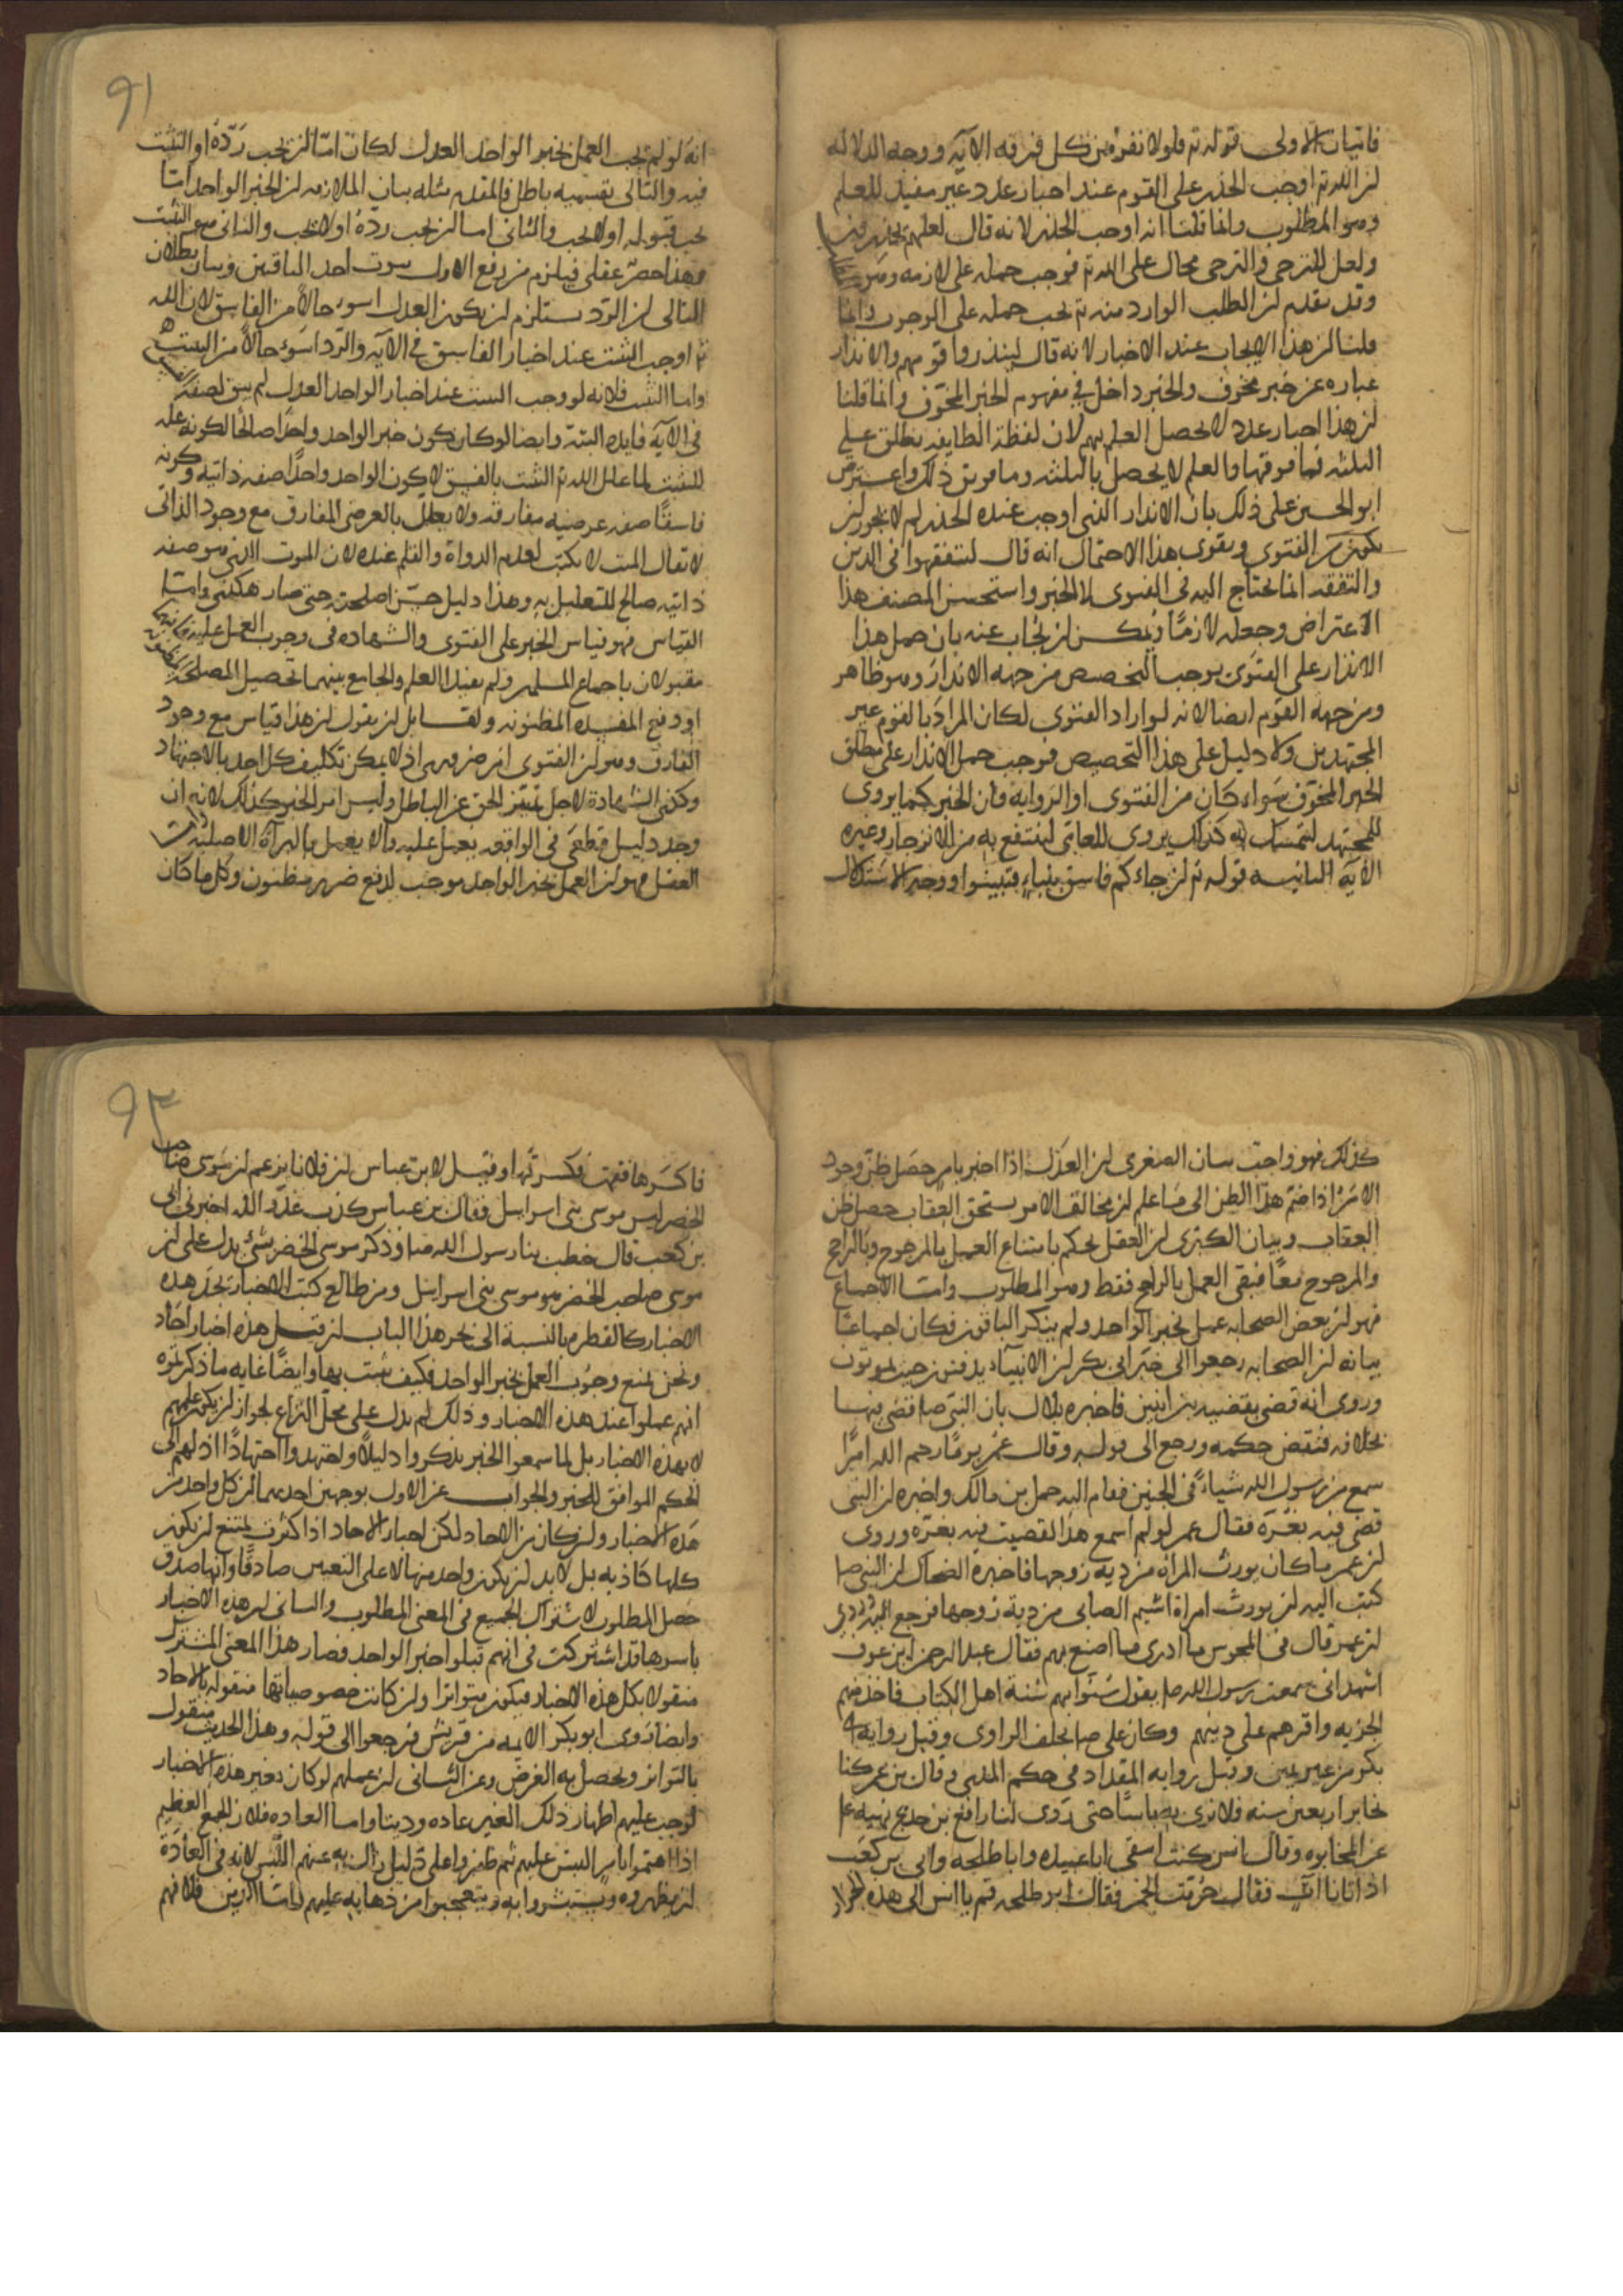 فايتان الاولى قوله تم فلولا نفر من كل فرقه الآيه ووجه الدلاله
لن الله تم اوجب الحذر على القوم عند اخبار عدد غير مفيد للعلم
وهو المطلوب وانما قلنا انه اوجب الحذر لانه قال لعلهم يحذرون
ولعل للترجى والترجى محال على الله تم فوجب حمله على لازمه وهو
وقد تقدم لن الطلب الوارد منه تم يجب حمله على الوجوب وانما
قلنا لن هذا الايجاب عند الاخبار لانه قال لينذروا قومهم والانذار
عباره عن خبر مخوف والخبر داخل فى مفهوم الخبر المخوف وانما قلنا
لن هذا اخبار عدد لا يحصل العلم بهم لان لفظة الطايفه تطلق على
الثلثه فما فوقها والعلم لا يحصل بالثلثه وما فوق ذلك واعترض
ابو الحسين على ذلك بان الانذار الذى اوجب عنده الحذر لم لا يجوز لن
يكون هو الفتوى ويقوى هذا الاحتمال انه قال ليتفقهوا فى الدين
والتفقه انما يحتاج اليه فى الفتوى لا الخبر واستحسن المصنف هذا
الاعتراض وجعله لازمًا ويمكن لن يجاب عنه بان حمل هذا
الانذار على الفتوى يوجب التخصيص من جهه الانذار وهو ظاهر
ومن جهه القوم ايضا لانه لو اراد الفتوى لكان المراد بالقوم غير
المجتهدين ولا دليل على هذا التخصيص فوجب حمل الانذار على مطلق
الخبر المخوف سواء كان من الفتوى او الروايه فان الخبر كما يروى
للمجتهد ليتمسك به كذلك يروى للعامى لينتفع به من الانزجار وغيره
الآيه الثانيه قوله تم لن جاءكم فاسق بنباءٍ فتبينوا ووجه الاستدلال
٩١
انه لو لم يجب العمل بخبر الواحد العدل لكان اما لن يجب رده او التثبت
فيه والتالى بقسميه باطل فالمقدم مثله بيان الملازمه لن الخبر الواحد اما
يجب قبوله او لا يجب والثانى اما لن يجب رده او لا يجب والثانى هو التثبت
وهذا حصر عقلى فيلزم من رفع الاول ثبوت احد الباقين وبيان بطلان
التالى لن الرد يستلزم لن يكون العدل اسوء حالاً من الفاسق لان الله
تم اوجب التثبت عند اخبار الفاسق فى الآيه والرد اسوء حالاً من التثبت
واما التثبت فلانه لو وجب التثبت عند اخبار الواحد العدل لم يبق لصفه
فى الآيه فايده البته وايضا لو كان كون خبر الواحد واحدًا صالحًا لكونه عله
للتثبت لما علل الله تم التثبت بالفسق لا كون الواحد واحدًا صفه ذاتيه وكونه
فاسقًا صفه عرضيه مفارقه ولا يعلل بالعرضى المفارق مع وجود الذاتى
لا يقال الميت لا يكتب لعدم الدواة والقلم عنده لان الموت الذى هو صفه
ذاتيه صالح للتعليل به وهذا دليل حسن اصلحته حتى صار هكذى واما
القياس فهو قياس الخبر على الفتوى والشهاده فى وجوب العمل عليه
مقبولان باجماع المسلمين ولم يفيدا العلم والجامع بينهما تحصيل المصلحه
او دفع المفسده المظنونه ولقايل لن يقول لن هذا قياس مع وجود
الفارق وهو لن الفتوى امر ضرورى اذ لا يمكن تكليف كل احد بالاجتهاد
وكذى الشهادة لاجل تمييز الحق عن الباطل وليس امر الخبر كذلك لانه ان
وجد دليل قطعى فى الواقعه يعمل عليه والا يعمل بالبرآة الاصليه واما
العقل فهو لن العمل بخبر الواحد موجب لدفع ضرر مظنون وكل ما كان
كذلك فهو واجب بيان الصغرى لن العدل اذا اخبر بامر حصل ظن وجود
الامر اذا ضم هذا الظن الى ما علم لن مخالف الامر يستحق العقاب حصل ظن
العقاب وبيان الكبرى لن العقل يحكم بامتناع العمل بالمرجوح وبالراجح
والمرجوح معًا فبقى العمل بالراجح فقط وهو المطلوب واما الاجماع
فهو لن بعض الصحابه عمل بخبر الواحد ولم ينكر الباقون فكان اجماعًا
بيانه لن الصحابه رجعوا الى خبر ابى بكر لن الانبياء يدفنون حيث يموتون
وروى انه قضى بقضيه بين اثنين فاخبره بلال بان النبى صا قضى فيها
بخلافه فنقض حكمه ورجع الى قوله وقال عمر يومًا رحم الله امرًا
سمع من رسول الله شياءً فى الجنين فقام اليه حمل بن مالك واخبره لن النبى
قضى فيه بغرّه فقال عمر لو لم اسمع هذا لقضيت فيه بغيره وروى
لن عمر ما كان يورث المراه من ديه زوجها فاخبره الضحاك لن النبى صا
كتب اليه لن يورث امراة اشيم الضبابى من دية زوجها فرجع اليه وروى
لن عمر قال فى المجوس ما ادرى ما اصنع بهم فقال عبد الرحمن بن عوف
اشهد انى سمعت رسول الله صا يقول سنوا بهم سنة اهل الكتاب فاخذ منهم
الجزيه واقرهم على دينهم وكان على صا يحلف الراوى وقبل روايه ابى
بكر من غير يمين وقبل روايه المقداد فى حكم المذى وقال بن عمر كنا
نخابر اربعين سنه فلا نرى به باسًا حتى روى لنا رافع بن خديج نهيه ع
عن المخابره وقال انس كنت اسقى ابا عبيده وابا طلحه وابى بن كعب
اذ اتانا اتٍ فقال حرمت الخمر فقال ابو طلحه قم يا انس الى هذه الجرار
٩٢
فاكسرها فقمت فكسرتها وقيل لابن عباس لن فلانا يزعم لن موسى صاحب
الخضر ليس موسى بنى اسرايل فقال بن عباس كذب عدو الله اخبرنى ابى
بن كعب قال خطب بنا رسول الله صا وذكر موسى الخضر بشئ يدل على لن
موسى صاحب الخضر هو موسى بنى اسرايل ومن طالع كتب الاخبار يجد هذه
الاخبار كالقطره بالنسبة الى بحر هذا الباب لن قيل هذه اخبار احاد
ونحن نمنع وجوب العمل بخبر الواحد فكيف يثبت بها وايضًا غايه ما ذكرتموه
انهم عملوا عند هذه الاخبار وذلك لم يدل على محل النزاع لجواز لن يكون عملهم
لا بهذه الاخبار بل لما سمعوا الخبر ذكروا دليلاً واجتهدوا اجتهادًا ادلهم الى
الحكم الموافق للخبر والجواب عن الاول بوجهين احدهما لن كل واحد من
هذه الاخبار ولن كان من الاحاد لكن اخبار الاحاد اذا كثرت يمتنع لن يكون
كلها كاذبه بل لا بد لن يكون واحد منها لا على التعيين صادقًا وانها صدق
حصل المطلوب لاشتراك الجميع فى المعنى المطلوب والثانى لن هذه الاخبار
باسرها قد اشتركت فى انهم قبلوا خبر الواحد فصار هذا المعنى المشترك
منقولا بكل هذه الاخبار فيكون متواترا ولن كانت خصوصياتها منقوله بالاحاد
وايضا روى ابو بكر الايمه من قريش فرجعوا الى قوله وهذا الحديث منقول
بالتواتر ويحصل به الغرض وعن الثانى لن عملهم لو كان بغير هذه الاخبار
لوجب عليهم اظهار ذلك الغير عاده ودينا واما العاده فلان الجمع العظيم
اذا اهتموا بامر التبس عليهم ثم ظفروا على دليل زال به عنهم اللبس لا بد فى العادة
لن يظهروه ويستبشروا به ويتعجبوا من ذهابه عليهم واما الدين فلانهم